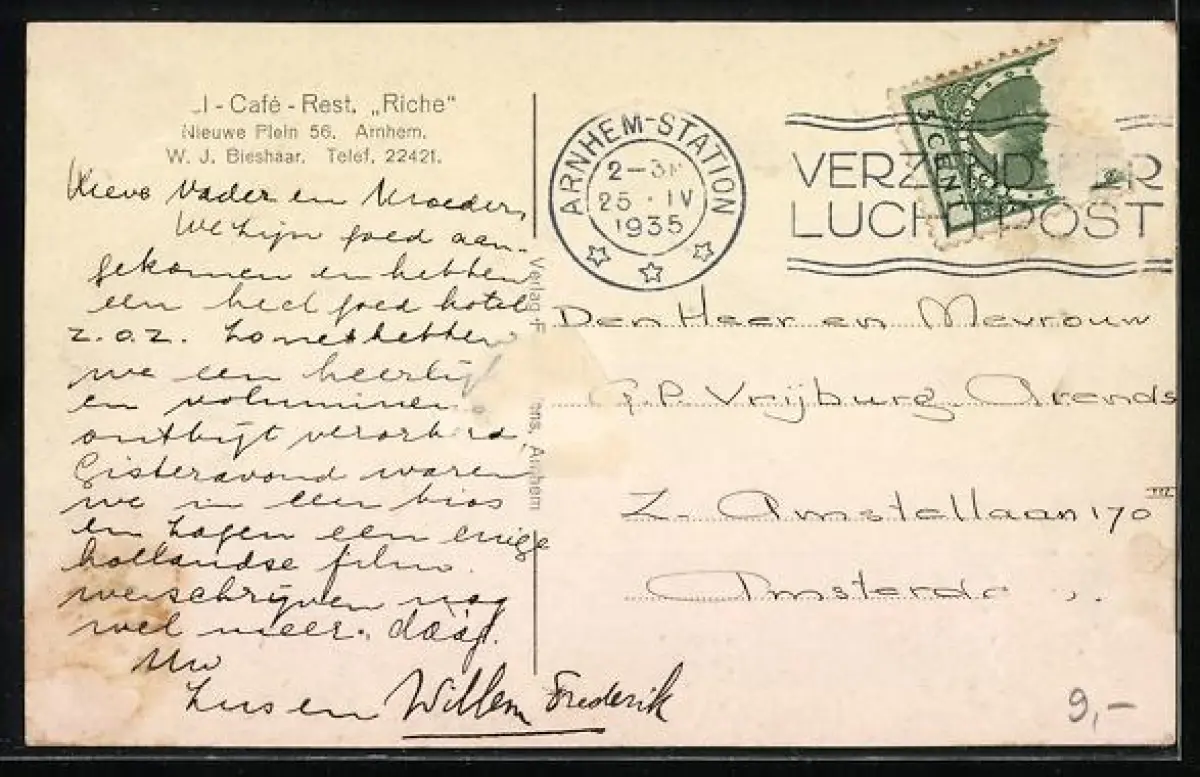 l - Café - Rest. „Riche“
Nieuwe Plein 56. Arnhem.
W. J. Bieshaar. Telef. 22421.
Lieve Vader en Moeder,
We zijn goed aan-
gekomen en hebben
een heel goed hotel
z.o.z. hebben
we een heerlijk
en
ontbijt verorberd.
Gisteravond waren
we in een bios
en zagen een enige
hollandse film.
we schrijven nog
wel meer. daag.
Uw
Lus en Willem Frederik
Verlag F
ons, Arnhem
ARNHEM-STATION
2-3N
25 . IV
1935
5 CENT
VERZEND PER
LUCHTPOST
Den Heer en Mevrouw
G.P. Vrijburg. Arends
Z. Amstellaan 170 III
Amsterda
9,-